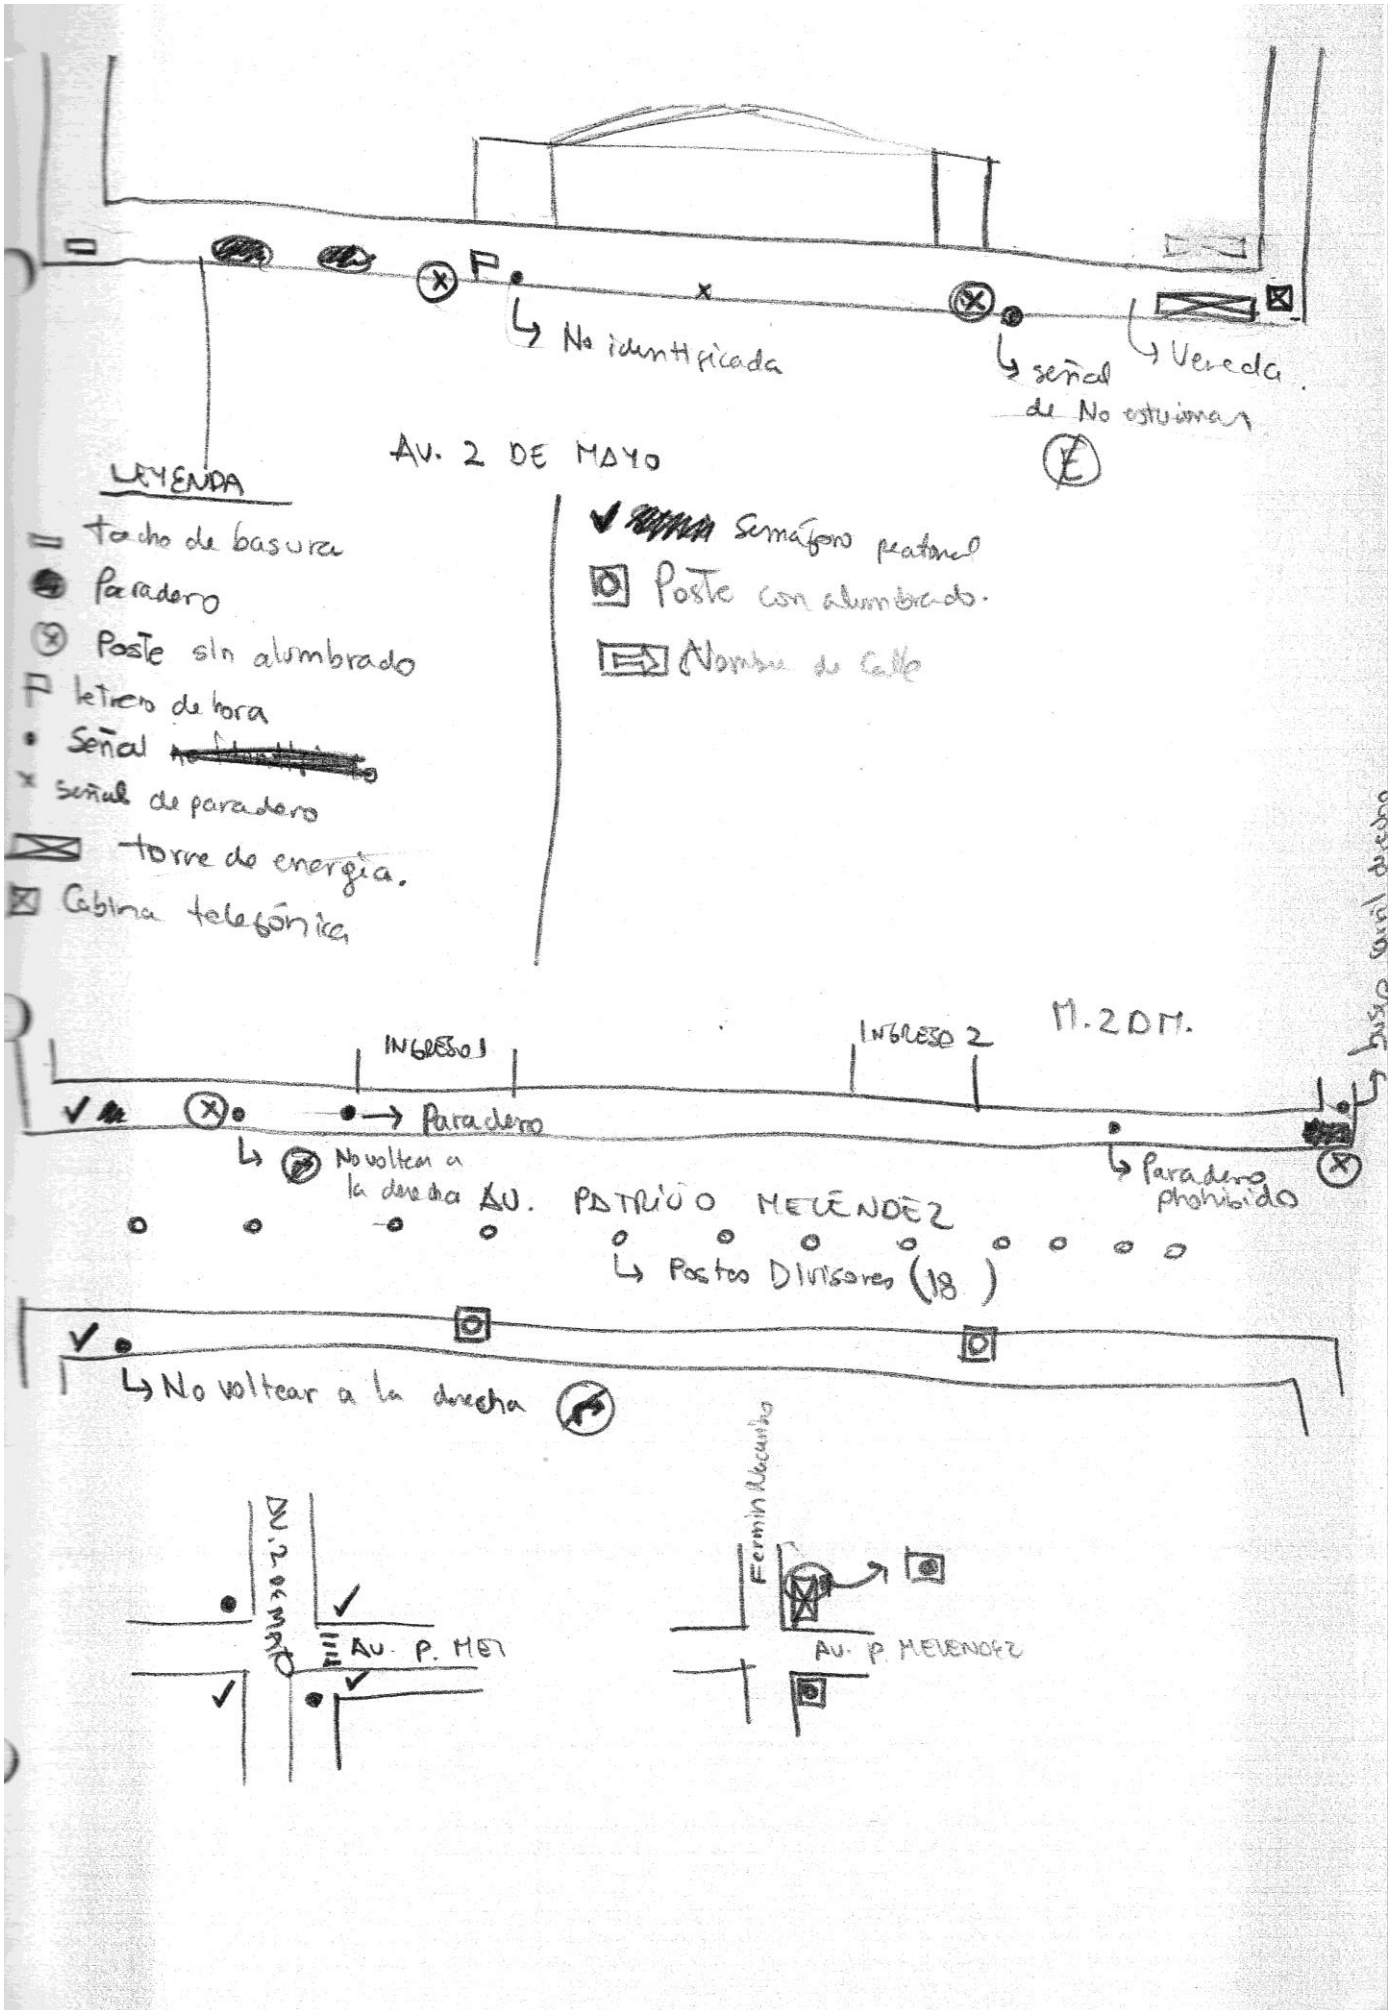 No identificada
Vereda.
señal
de No estacionar
E
AV. 2 DE MAYO
LEYENDA
tacho de basura
Paradero
Poste sin alumbrado
letrero de hora
Señal
señal de paradero
torre de energía.
Cabina telefónica
Semáforo peatonal
Poste con alumbrado.
Nombre de Calle
M. 2 DM.
INGRESO 1
INGRESO 2
buses carril derecho
Paradero
No voltear a
la derecha
Paradero
prohibido
AV. PATRICIO MELÉNDEZ
Postes Divisores (18 )
No voltear a la derecha
AV. 2 DE MAYO
AV. P. MEL
Fermin Nacarino
AV. P. MELENDEZ